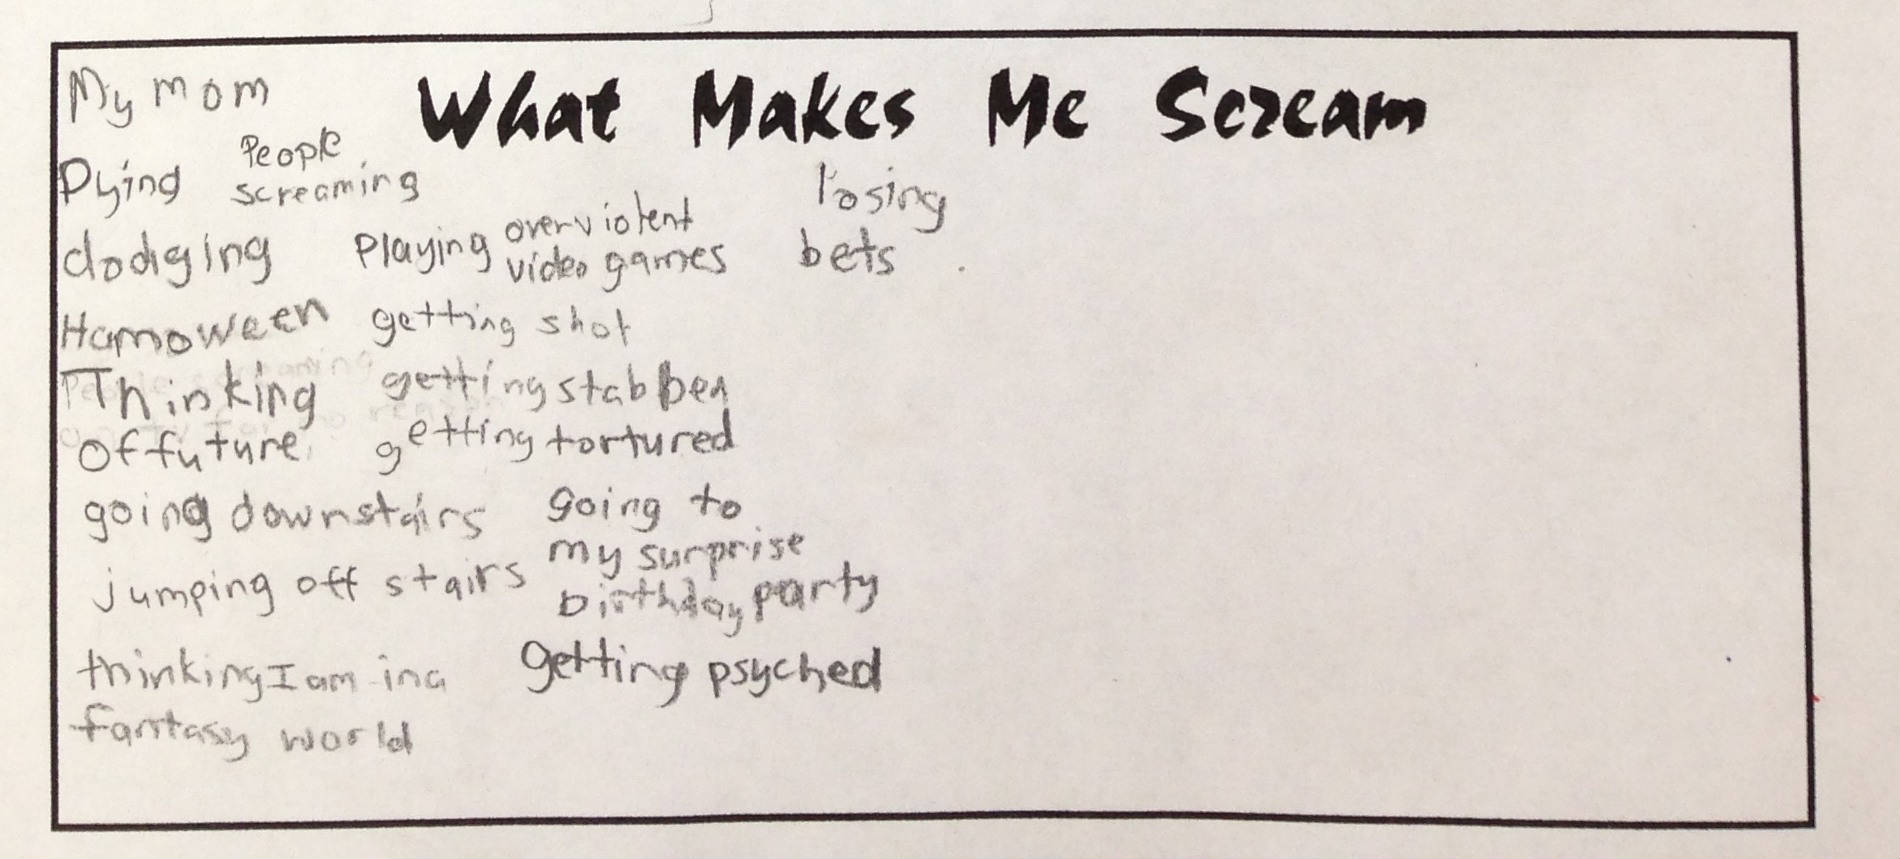 What Makes Me Scream
My mom
Dying
People
screaming
dodging
playing overviolent
video games
losing
bets
Hamoween
getting shot
Thinking
getting stabben
of future
getting tortured
going downstairs
going to
my surprise
birthday party
jumping off stairs
thinking I am in a
fantasy world
getting psyched